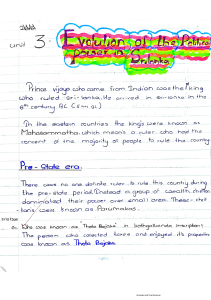 unit 3 - Evolution of the Political
power in Srilanka
Prince vijaya who came from Indian was the king
who ruled sri lanka. He arrived in sri lanka in the
6th century BC
In the eastern countries the kings were known as
Mahasammatha. which means a ruler who had the
concent of the majority of people to rule the county
Pre - State era
There was no one definite ruler to rule this county during
the pre-state period. Instead a group of
dominated their power over small areas. These
were known as Parumakas.
was known as Thala Rajaka in Kothgallkanda inscription
The person who collected taxes and enjoyed its properties
was known as Thala Rajaka